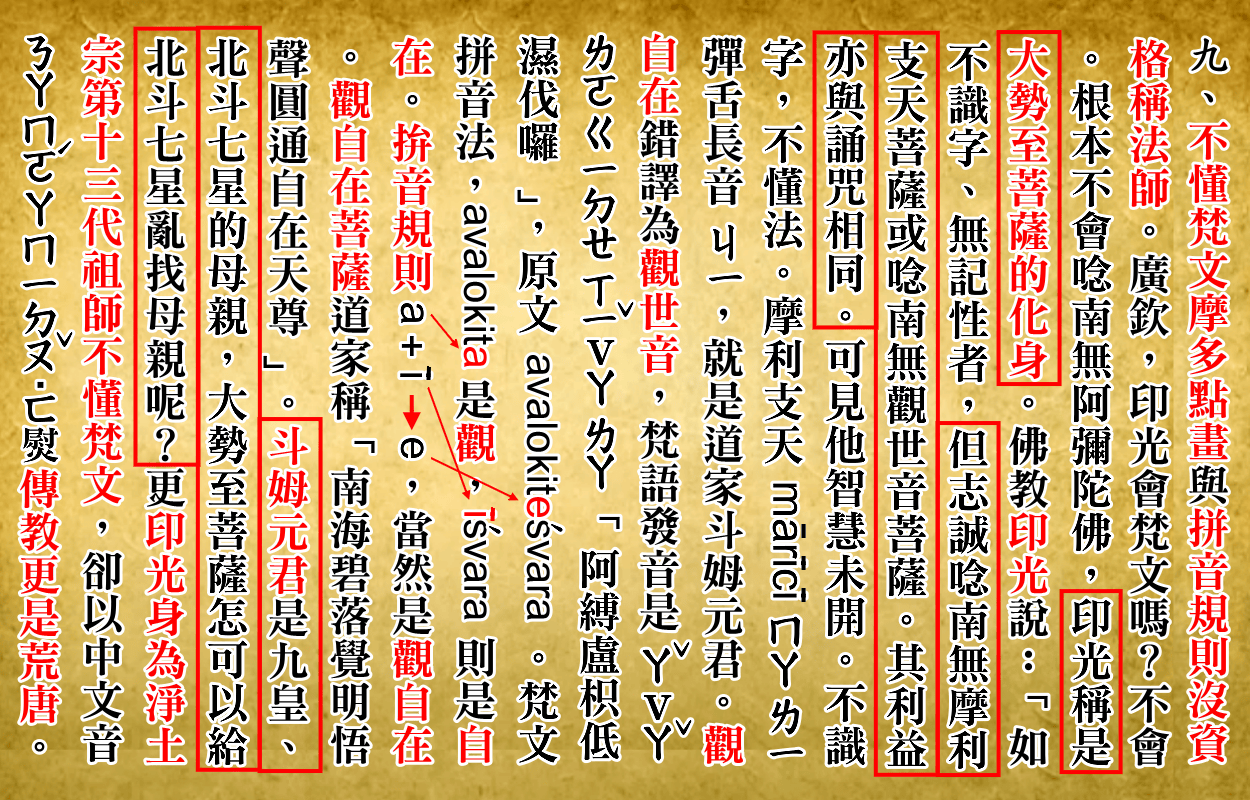 九、不懂梵文摩多點畫與拼音規則沒資
格稱法師。廣欽，印光會梵文嗎？不會
。根本不會唸南無阿彌陀佛，印光稱是
大勢至菩薩的化身。佛教印光說：「如
不識字、無記性者，但志誠唸南無摩利
支天菩薩或唸南無觀世音菩薩。其利益
亦與誦咒相同。可見他智慧未開。不識
字，不懂法。摩利支天 mārīcī ㄇㄚㄌㄧ
彈舌長音 ㄐㄧ，就是道家斗姆元君。觀
自在錯譯為觀世音，梵語發音是 ㄚˇVㄚˇ
ㄌㄛㄍㄧㄉㄝㄒㄧˇVㄚㄌㄚ「阿縛盧枳低
濕伐囉 」，原文 avalokiteśvara 。梵文
拼音法，avalokita 是觀，īśvara 則是自
在。拚音規則 a + ī ➡ e，當然是觀自在
。觀自在菩薩道家稱「南海碧落覺明悟
聲圓通自在天尊 」。斗姆元君是九皇、
北斗七星的母親，大勢至菩薩怎可以給
北斗七星亂找母親呢？更印光身為淨土
宗第十三代祖師不懂梵文，卻以中文音
ㄋㄚㄇㄛˊㄚㄇㄧㄉㄡˇ·ㄈ熨傳教更是荒唐。